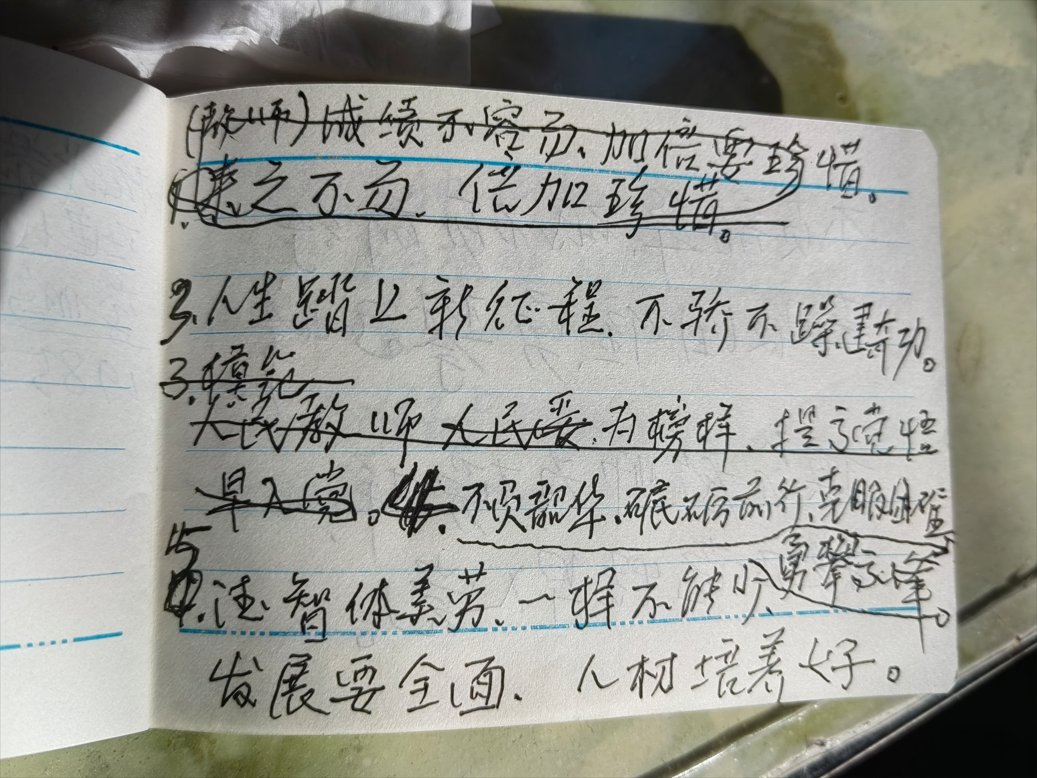 (教师)成绩不容易、加倍要珍惜。
来之不易、倍加珍惜。
3.人生踏上新征程、不骄不躁建奇功。
3.模范
人民教师人民爱、为榜样、提高觉悟
早入党。不负韶华、砥砺前行、克服困难
勇攀高峰。
5.德智体美劳、一样不能少、
发展要全面、人材培养好。